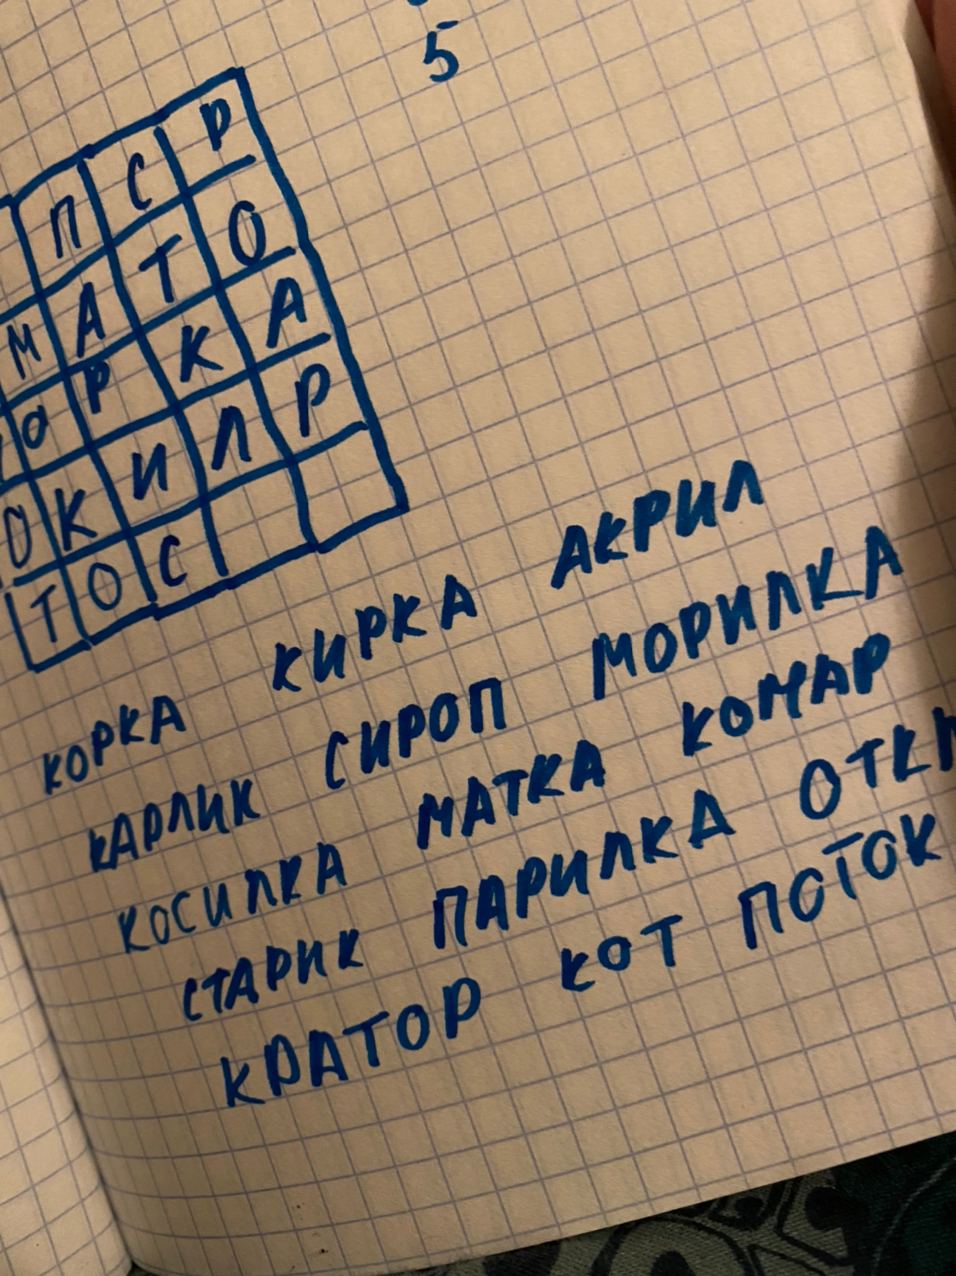 5
П С Р
М А Т О
О Р К А
О К И Л Р
Т О С
КОРКА КИРКА АКРИЛ
КАРЛИК СИРОП МОРИЛКА
КОСИЛКА МАТКА КОМАР
СТАРИК ПАРИЛКА
КРАТОР КОТ ПОТОК